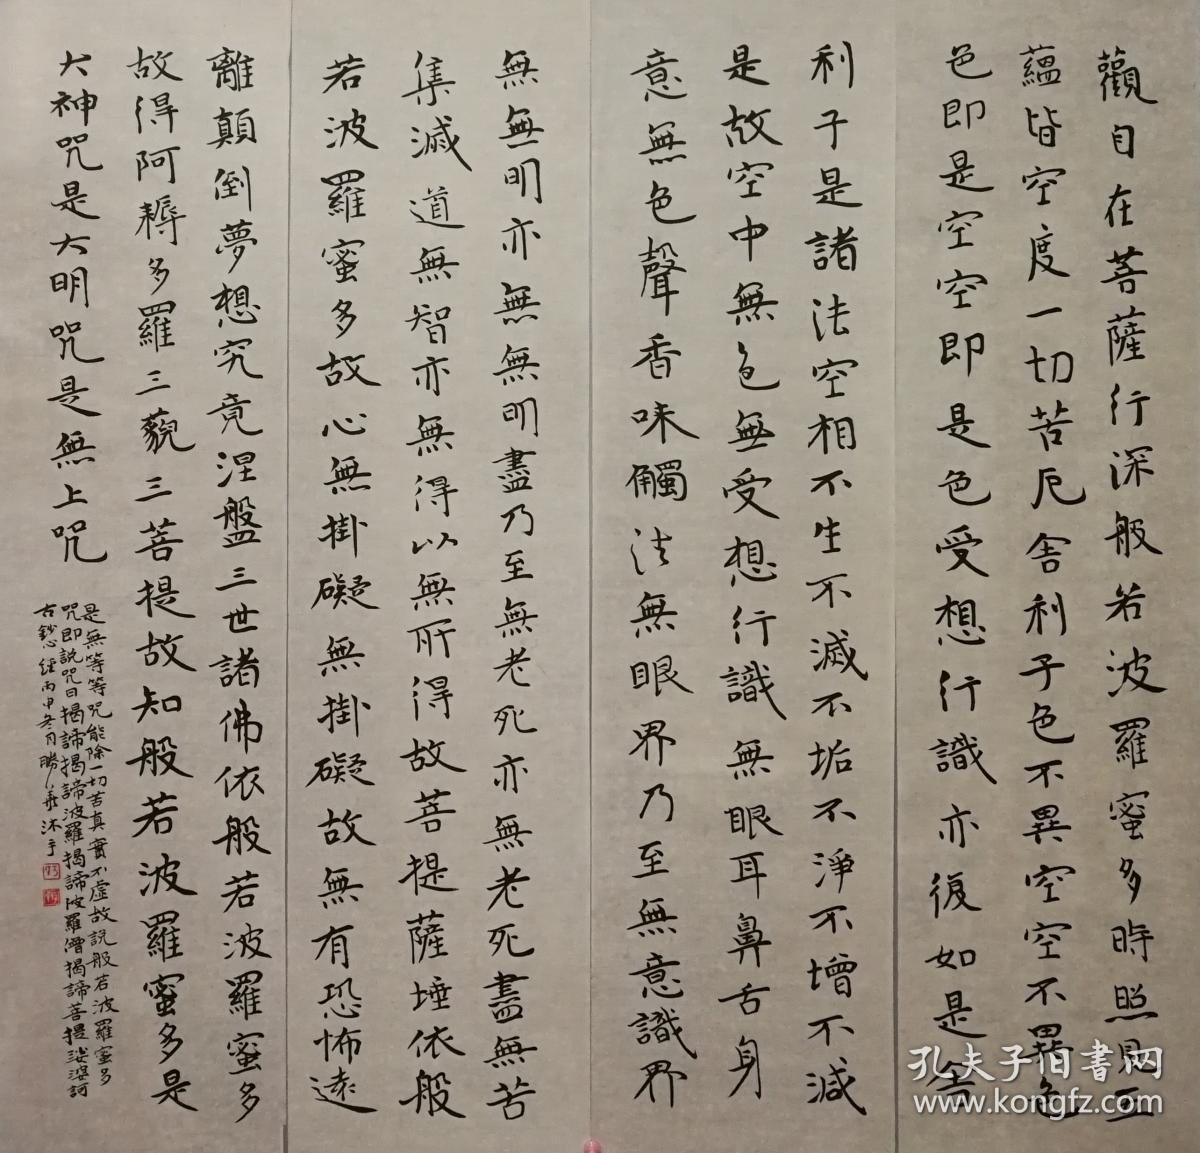 觀自在菩薩行深般若波羅蜜多時照見五
蘊皆空度一切苦厄舍利子色不異空空不異色
色即是空空即是色受想行識亦復如是舍
利子是諸法空相不生不滅不垢不淨不增不減
是故空中無色無受想行識無眼耳鼻舌身
意無色聲香味觸法無眼界乃至無意識界
無無明亦無無明盡乃至無老死亦無老死盡無苦
集滅道無智亦無得以無所得故菩提薩埵依般
若波羅蜜多故心無掛礙無掛礙故無有恐怖遠
離顛倒夢想究竟涅盤三世諸佛依般若波羅蜜多
故得阿耨多羅三藐三菩提故知般若波羅蜜多是
大神咒是大明咒是無上咒
是無等等咒能除一切苦真實不虛故說般若波羅蜜多
咒即說咒曰揭諦揭諦波羅揭諦波羅僧揭諦菩提娑婆訶
古鈔心經丙申冬月勝華沐手
孔夫子旧書网
www.kongfz.com